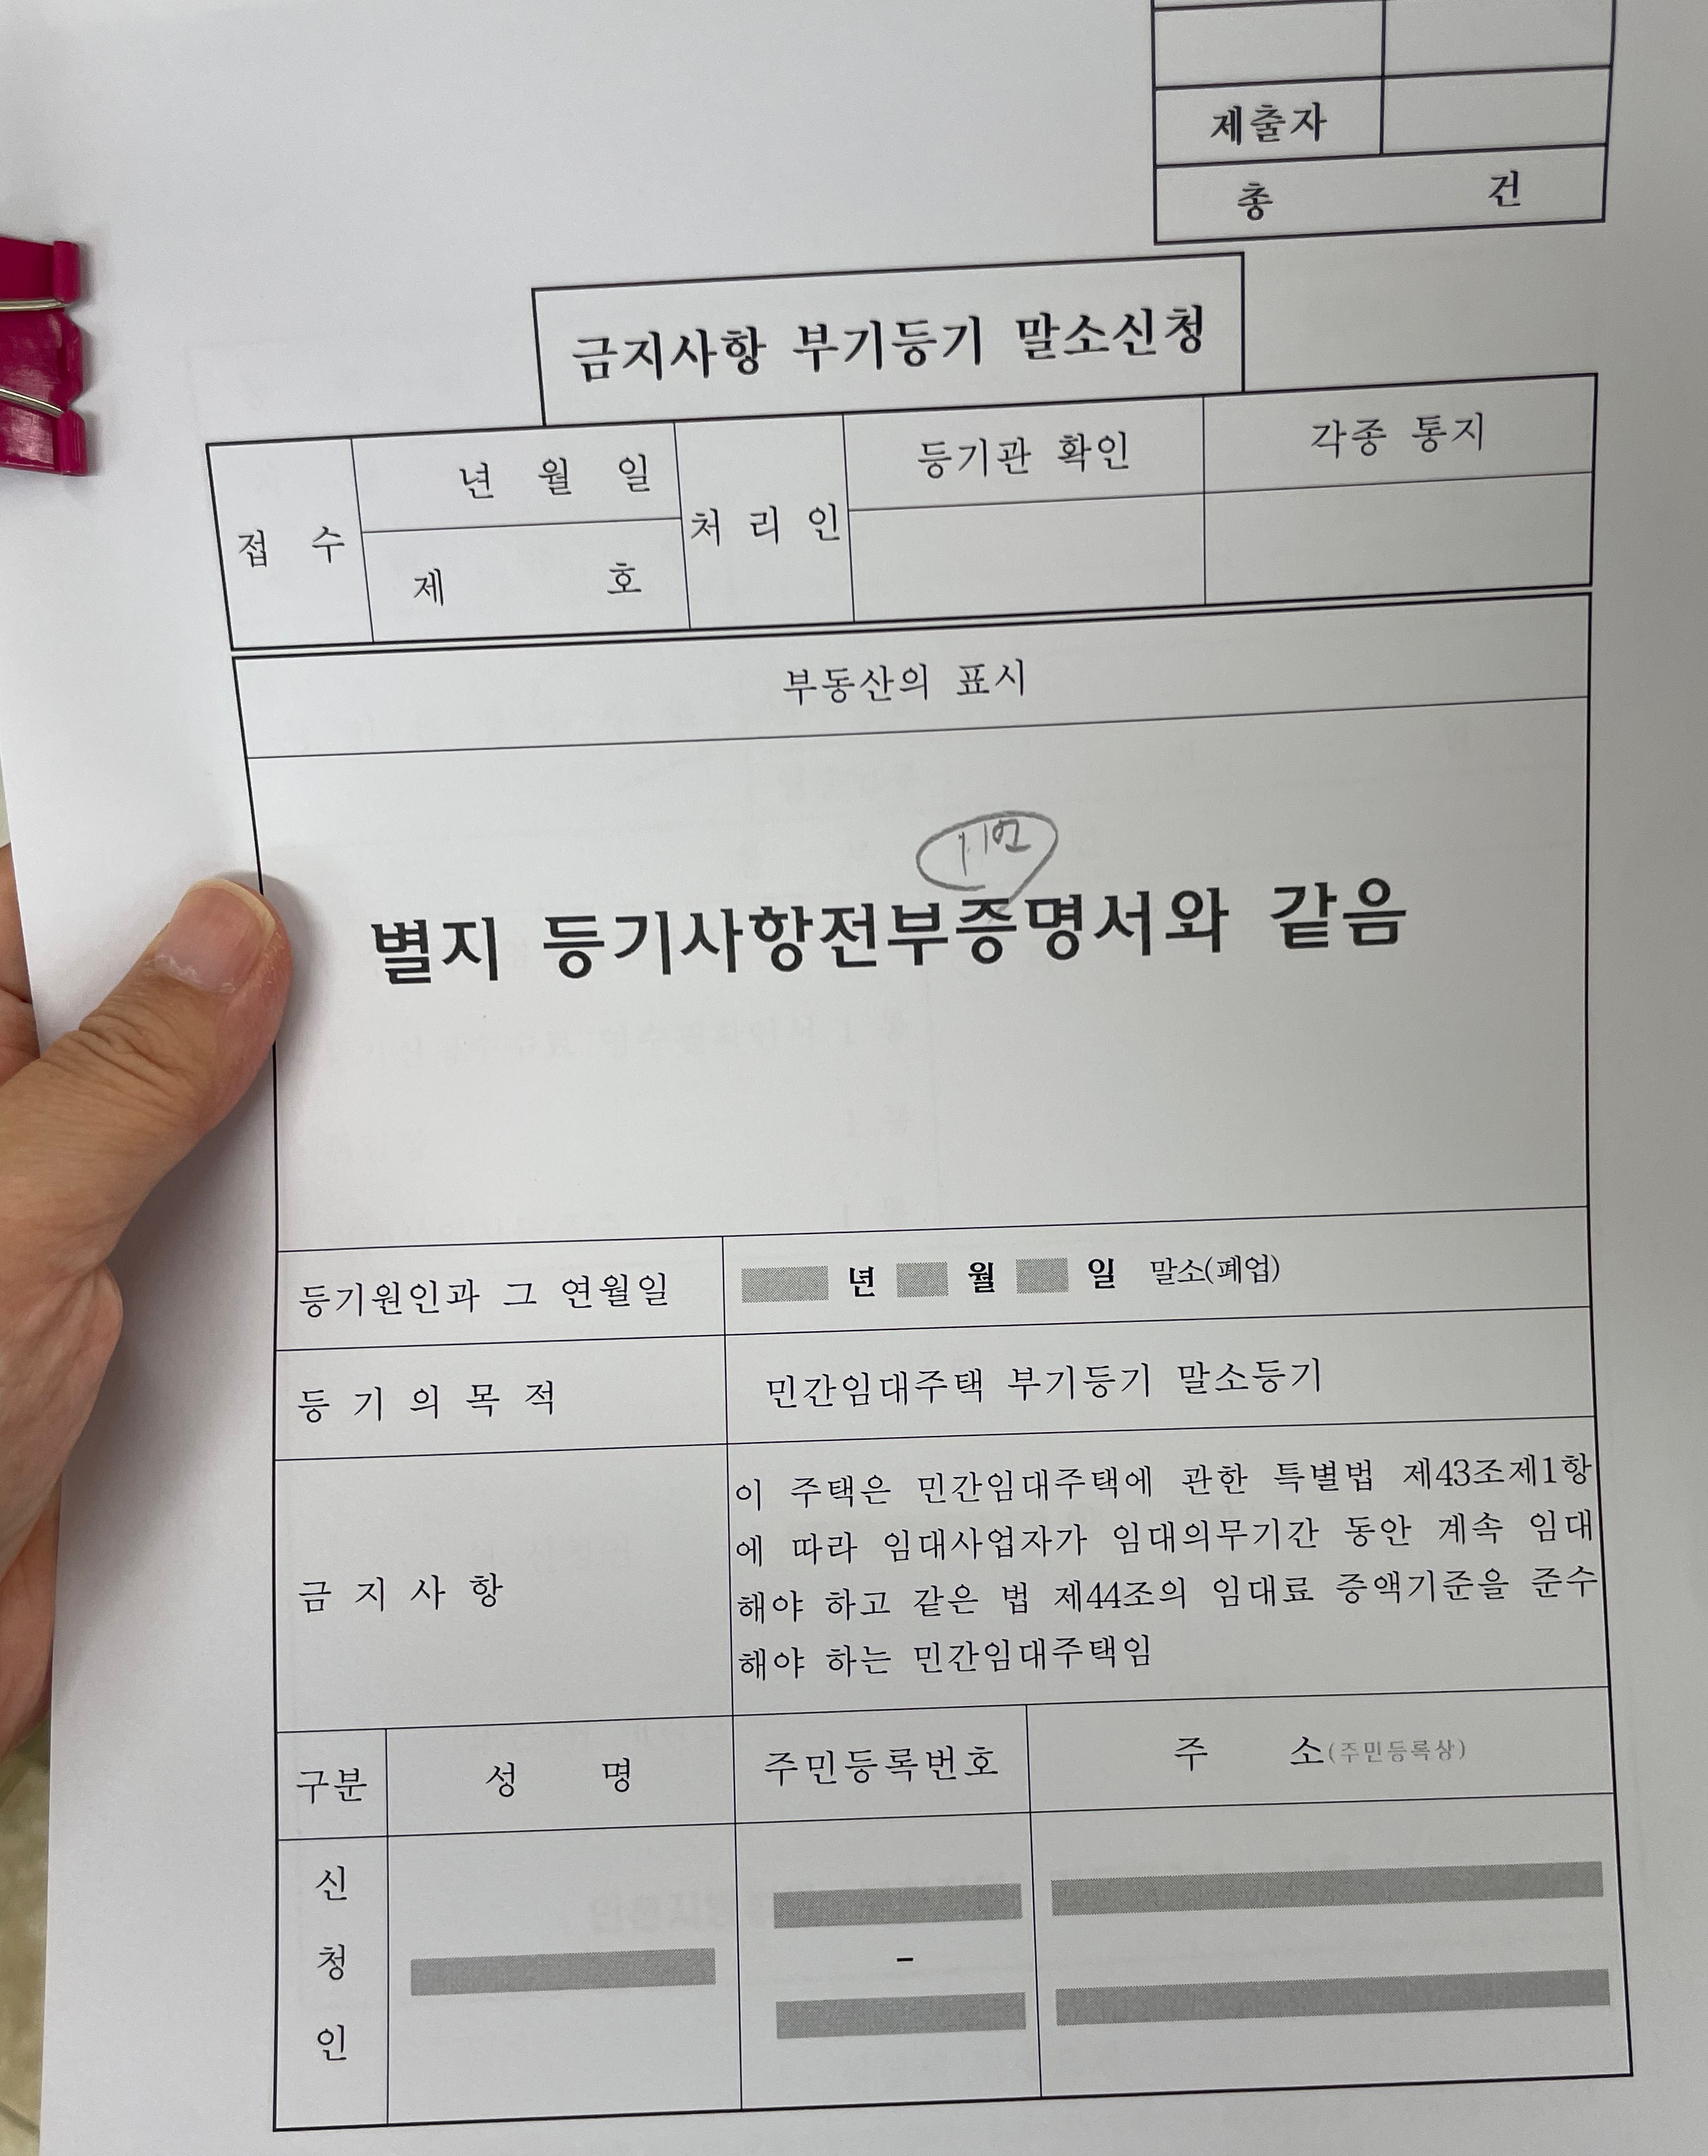 제출자
총 건
금지사항 부기등기 말소신청
접 수
년 월 일
제 호
처 리 인
등기관 확인
각종 통지
부동산의 표시
별지 등기사항전부증명서와 같음
등기원인과 그 연월일
년 월 일 말소(폐업)
등 기 의 목 적
민간임대주택 부기등기 말소등기
금 지 사 항
이 주택은 민간임대주택에 관한 특별법 제43조제1항
에 따라 임대사업자가 임대의무기간 동안 계속 임대
해야 하고 같은 법 제44조의 임대료 증액기준을 준수
해야 하는 민간임대주택임
구분
성 명
주민등록번호
주 소(주민등록상)
신
청
인
-